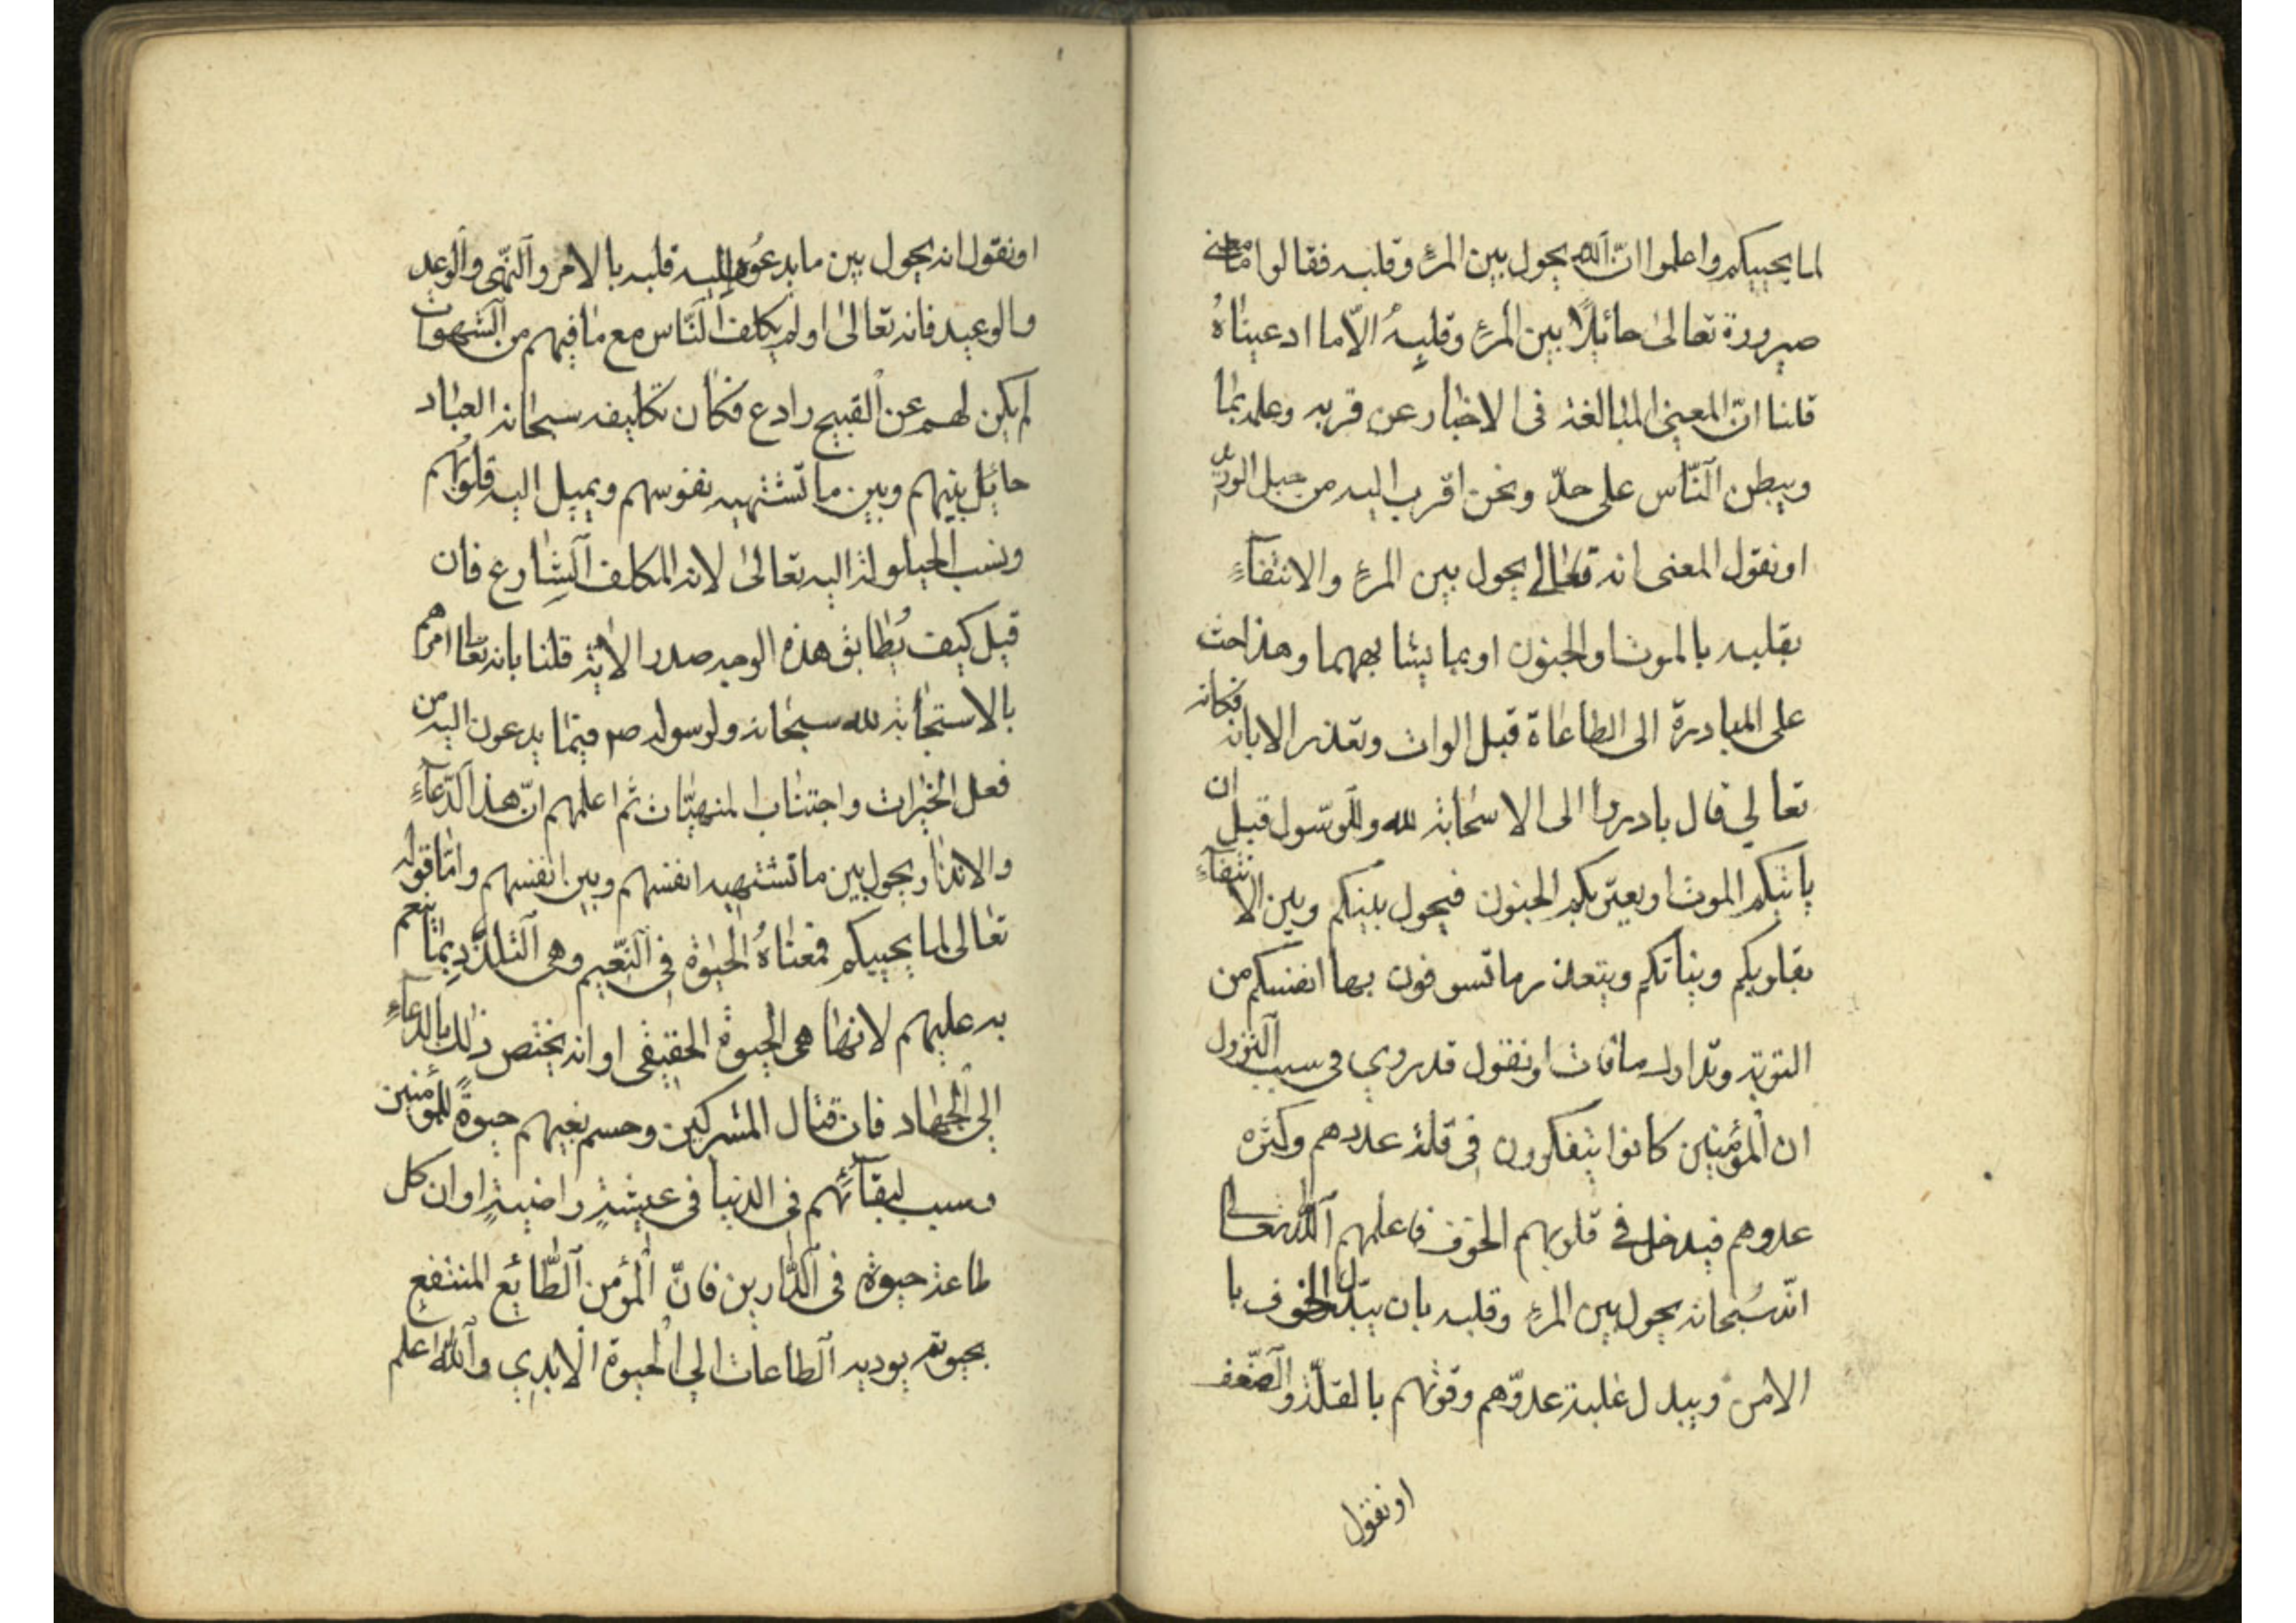 لما يحييكم واعلموا انّ الله يحول بين المرءِ وقلبه فقالوا ما معنى
صيرورة تعالى حائلًا بين المرءِ وقلبِهُ الّا ما ادعيناهُ
قلنا انّ المعنى المبالغة فى الاخبار عن قربه وعلمه بما
ويبطن النّاس على حدّ ونحن اقرب اليه من حبل الوريد
او نقول المعنى انه تعالى يحول بين المرءِ والانتفآءِ
بقلبه بالموت او الجنون او بما يشابههما وهذا حث
على المبادرة الى الطاعاة قبل الوات وتعذر الابانة فكانه
تعالى قال بادروا الى الاسجابة لله وللرّسول قبل ان
ياتيكم الموت او يعتريكم الجنون فيحول بينكم وبين الانتفآء
بقلوبكم وبناتكم ويتعذر ما تسوفون بها انفسكم من
التوبة وتدارك مافات او نقول قد روي فى سبب النزول
ان المؤمنين كانوا يتفكرون فى قلة عددهم وكثرة
عدوهم فيدخل في قلوبهم الخوف فاعلمهم اللّه تعالى
انّه سُبحانه يحول بين المرءِ وقلبه بان يبدّل الخوف با
الامن ويبدل غلبة عدوّهم وقوتهم بالقلّة والضّعف
او نقول
او نقول انه يحول بين ما يدعوه اليه قلبه بالامر والنّهى والوعد
والوعيد فانه تعالى او لم يكلف النّاس مع ما فيهم من الشهوات
لم يكن لهم عن القبيح رادع فكان تكليفه سبحانه العباد
حائل بينهم وبين ما تشتهيه نفوسهم ويميل اليه قلوبهم
ونسب الحيلولة اليه تعالى لانه المكلف الشارع فان
قيل كيف يُطابق هذه الوجه صدر الاية قلنا بانه تعالى امرهم
بالاستجابة لله سبحانه ولرسوله صم فيما يدعون اليه من
فعل الخيرات واجتناب المنهيّات ثم اعلمهم انّ هذا الدّعآءِ
والانذار يحول بين ما تشتهيه انفسهم وبين انفسهم وامّا قوله
تعالى لما يحييكم فمعناهُ الحيوة فى النّعيم وهى التلذّذ بما ينعم
به عليهم لانها هى الحيوة الحقيقى او انه يختص ذلك بالدعآءِ
الى الجهاد فان قتال المشركين وحسم بغيهم حيوةً للمؤمنين
وسبب لبقآئهم فى الدنيا فى عيشةٍ راضيةٍ او ان كل
طاعة حيوة فى الدّارين فانّ المؤمن الطّائع المنتفع
بحيوته يوديه الطاعات الى الحيوة الابدي واللّه اعلم